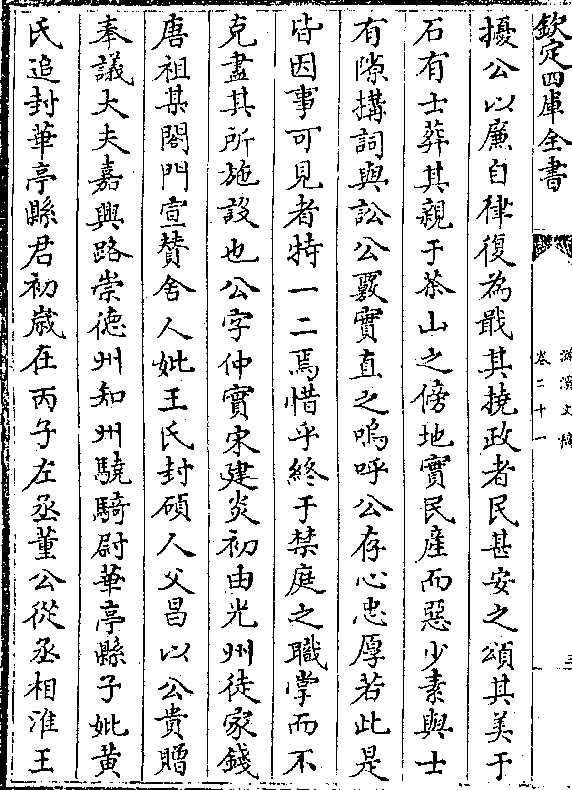 欽定四庫全書
滋溪文稿
卷二十一
三
擾公以廉自律復為戢其撓政者民甚安之頌其美于
石有士葬其親于茶山之傍地實民產而惡少素與士
有隙搆詞與訟公覈實直之嗚呼公存心忠厚若此是
皆因事可見者特一二焉惜乎終于禁庭之職掌而不
克盡其所施設也公字仲實宋建炎初由光州徙家錢
唐祖某閤門宣贊舍人妣王氏封碩人父昌以公貴贈
奉議大夫嘉興路崇德州知州驍騎尉華亭縣子妣黃
氏追封華亭縣君初歲在丙子左丞董公從丞相淮王